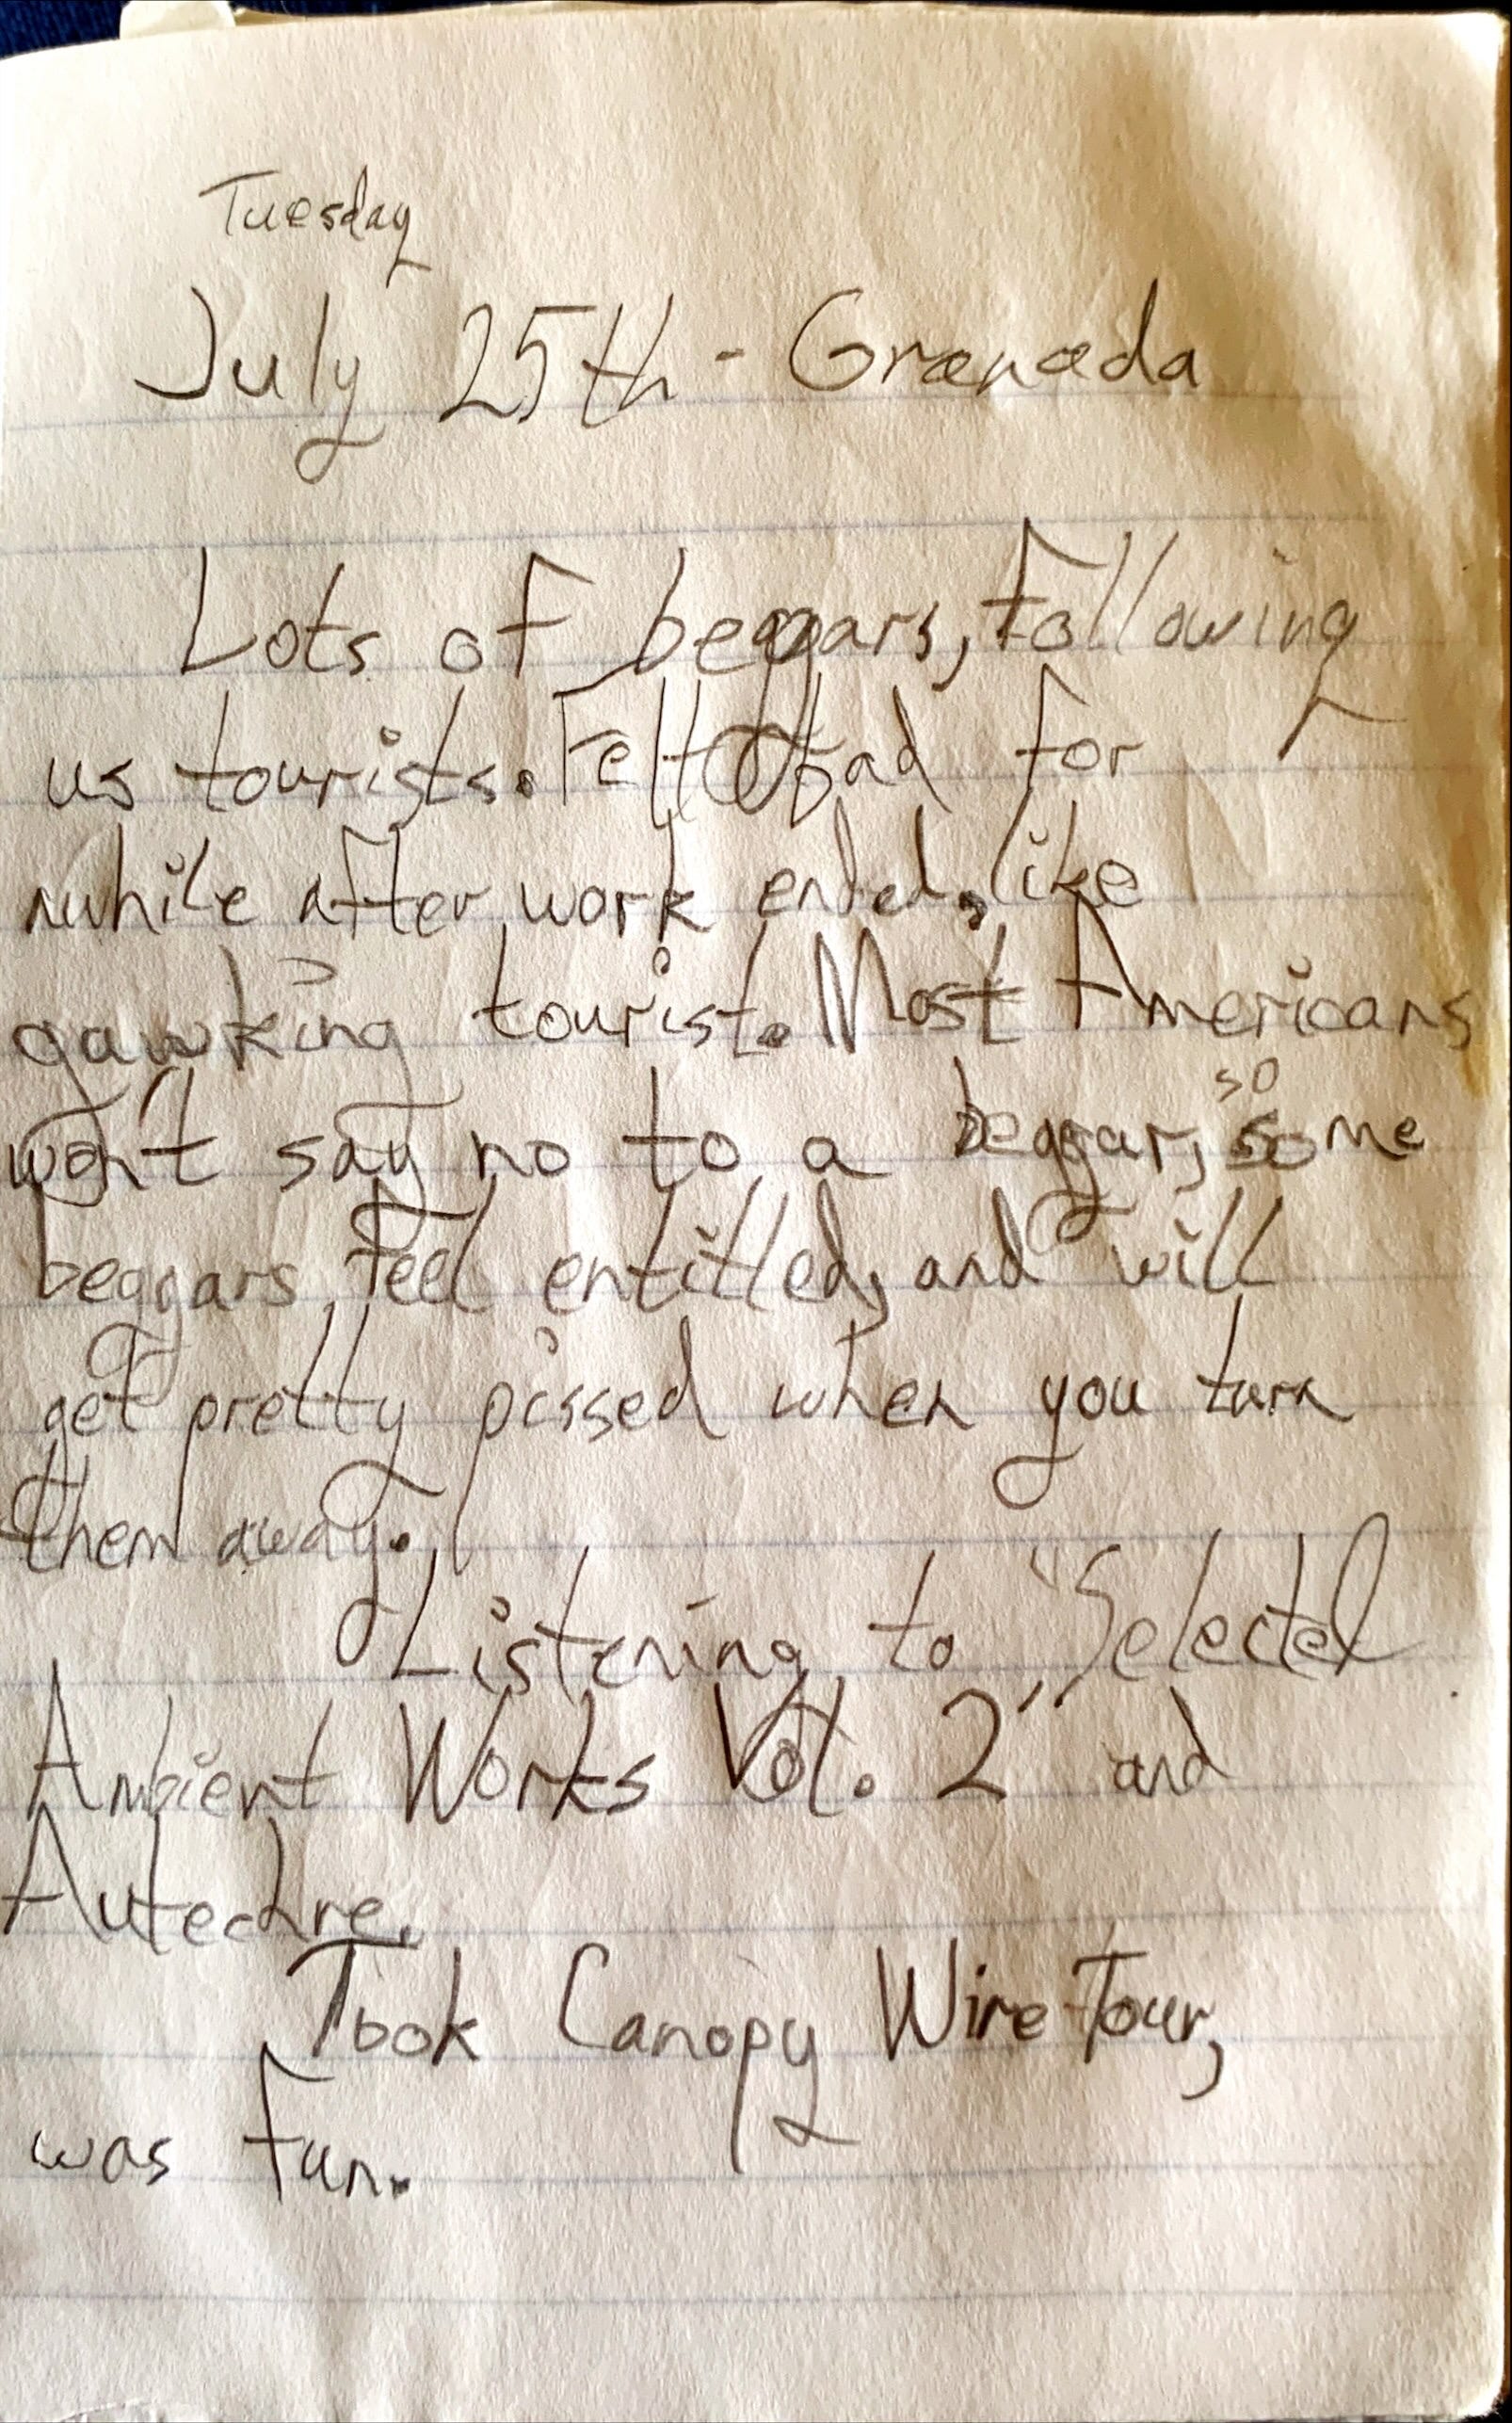 Tuesday
July 25th - Granada
Lots of beggars, following
us tourists. Felt bad for
awhile after work ended, like
gawking tourist. Most Americans
won't say no to a beggar, so some
beggars feel entitled, and will
get pretty pissed when you turn
them away.
Listening to "Selected
Ambient Works Vol. 2" and
Autechre.
Took Canopy Wire Tour,
was fun.